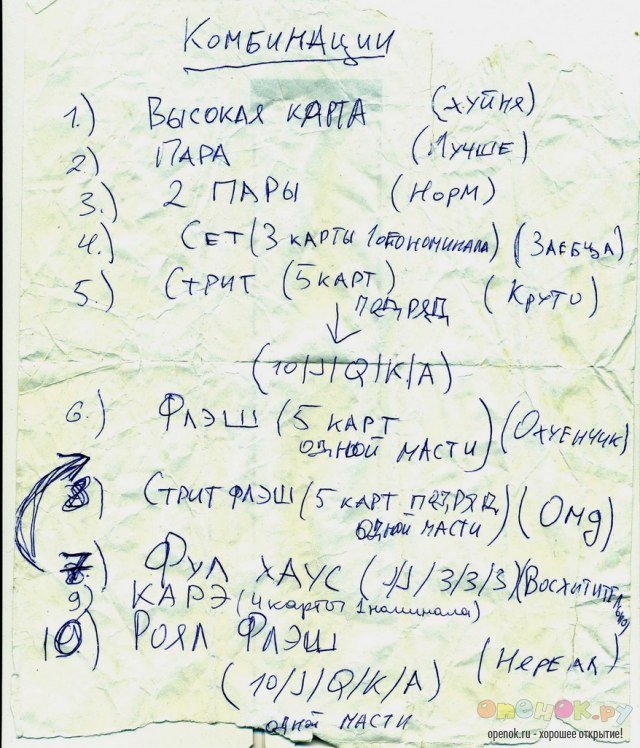 КОМБИНАЦИИ
1.) ВЫСОКАЯ КАРТА (ХУЙНЯ)
2) ПАРА (ЛУЧШЕ)
3.) 2 ПАРЫ (НОРМ)
4.) СЕТ (3 КАРТЫ 1ОГОНОМИНАЛА) (ЗАЕБЦА)
5.) СТРИТ (5 КАРТ) (КРУТО)
ПОДРЯД
(10/J/Q/K/A)
6.) ФЛЭШ (5 КАРТ
ОДНОЙ МАСТИ) (ОХУЕНЧИК)
8) СТРИТ ФЛЭШ (5 КАРТ ПОДРЯД
ОДНОЙ МАСТИ) (ОМД)
7.) ФУЛ ХАУС (J/J/3/3/3) (ВОСХИТИТЕЛЬНО)
9) КАРЭ (4 карты 1 наминала)
10.) РОЯЛ ФЛЭШ (НЕРЕАЛ)
(10/J/Q/K/A)
ОДНОЙ МАСТИ
опенок.ру
openok.ru - хорошее открытие!